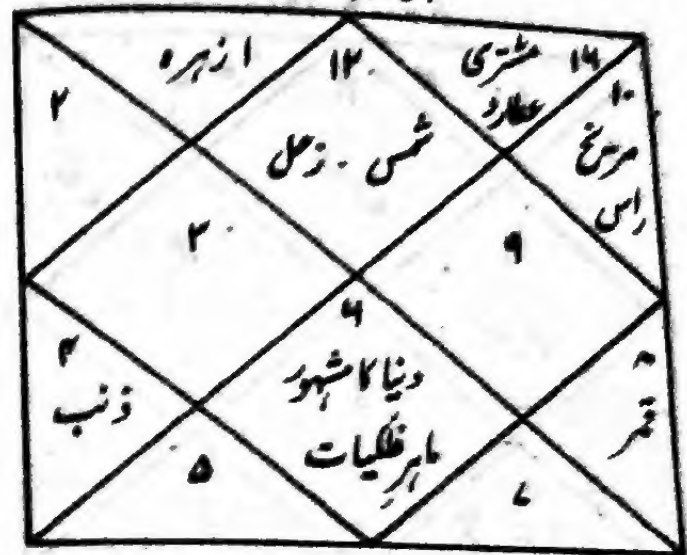 ۱ زہرہ
۱۲
مشتری ۱۱
عطارد
۱۰
مریخ
راس
۲
شمس - زحل
۳
۹
۴
ذنب
۶
دنیا کا مشہور
ماہرِ فلکیات
۸
قمر
۵
۷